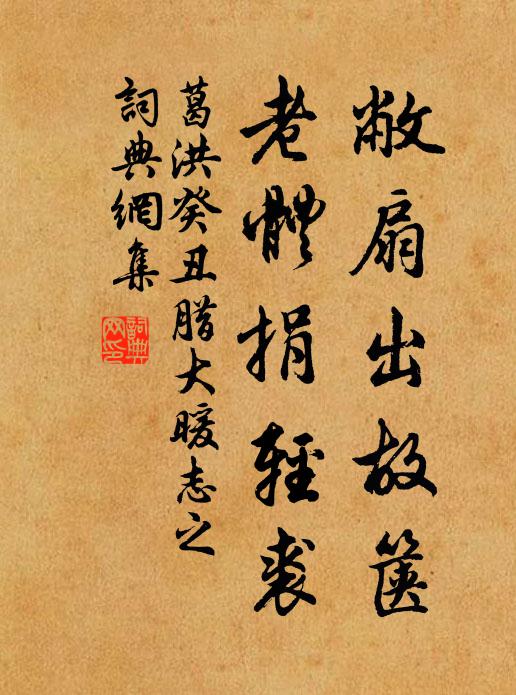 敝扇出故篋
老體捐輕裘
葛洪癸丑腊大暖志之
詞典網集
詞典網印